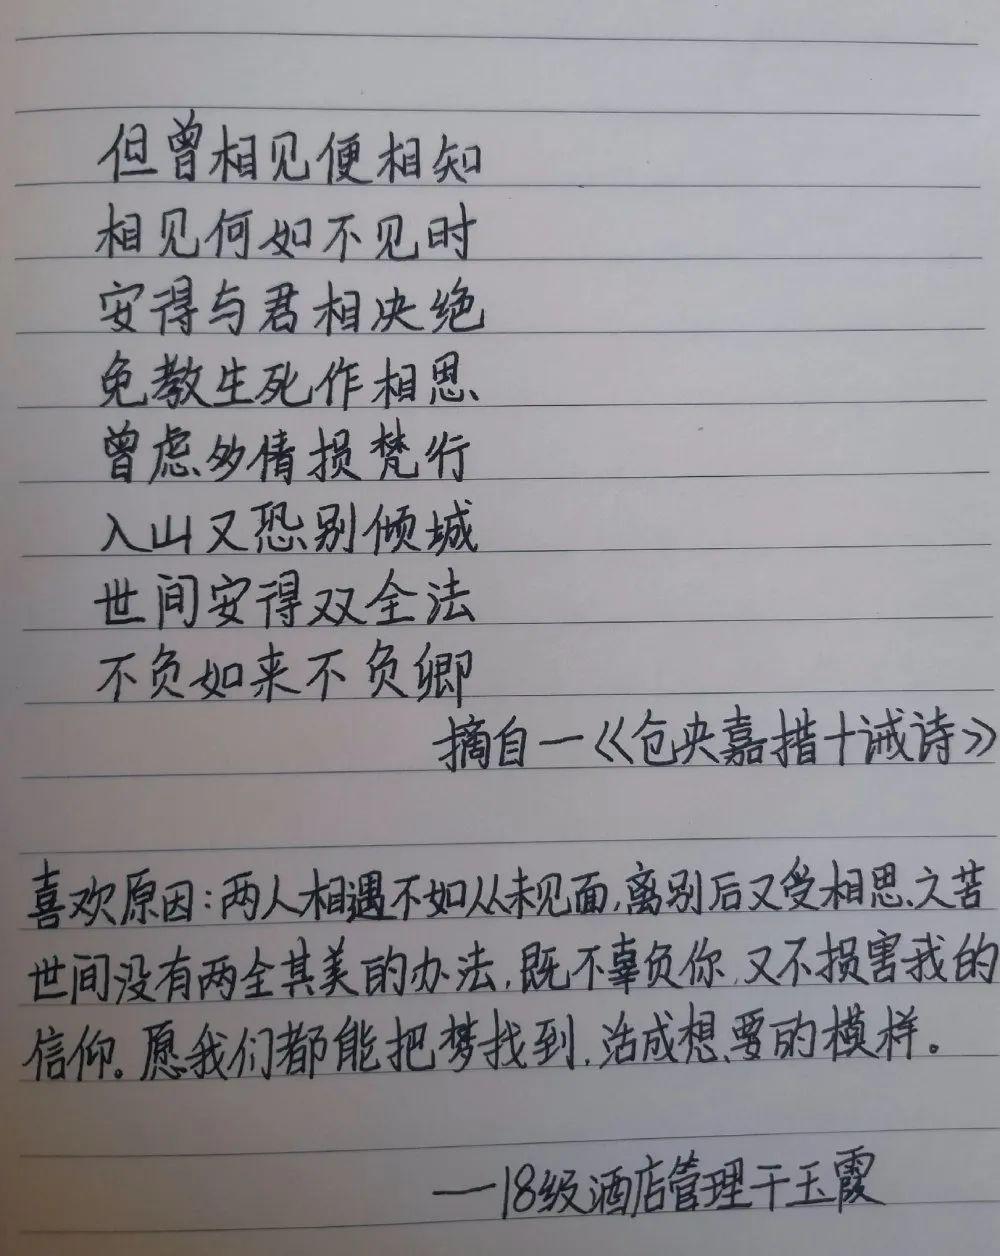 但曾相见便相知
相见何如不见时
安得与君相决绝
免教生死作相思
曾虑多情损梵行
入山又恐别倾城
世间安得双全法
不负如来不负卿
摘自一《仓央嘉措十诫诗》
喜欢原因:两人相遇不如从未见面,离别后又受相思之苦
世间没有两全其美的办法,既不辜负你,又不损害我的
信仰。愿我们都能把梦找到,活成想要的模样。
—18级酒店管理干玉霞